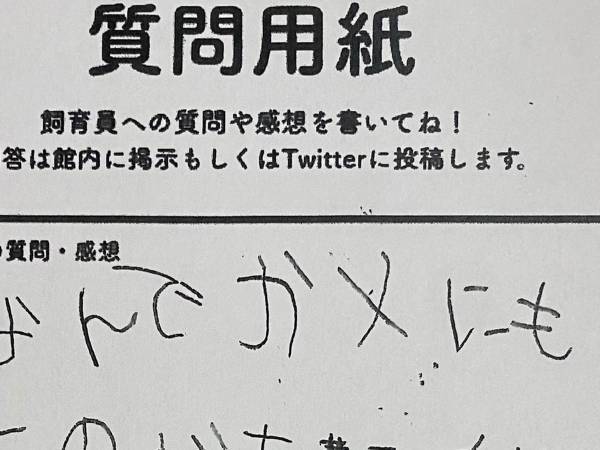 質問用紙
飼育員への質問や感想を書いてね！
答は館内に掲示もしくはTwitterに投稿します。
の質問・感想
なんでガメにも